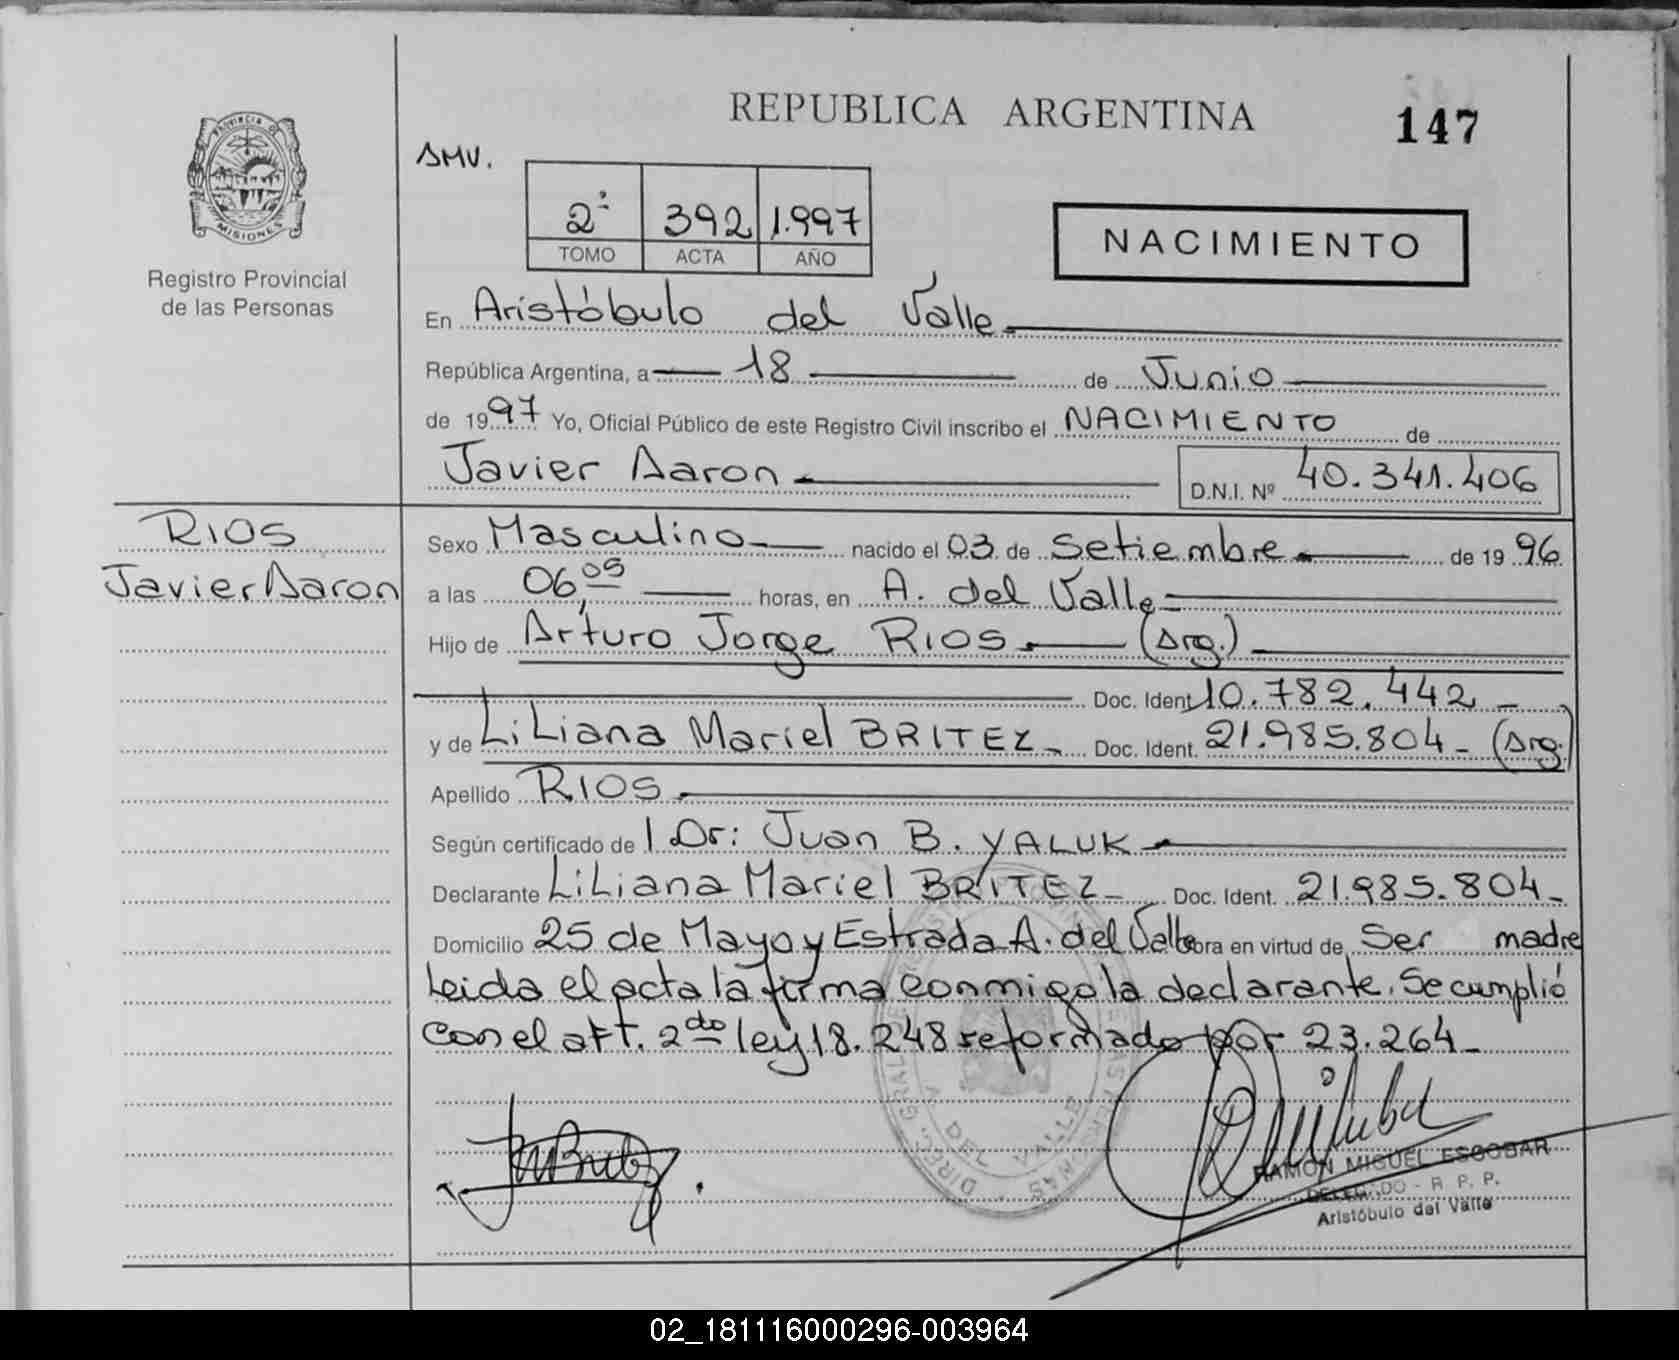 REPUBLICA ARGENTINA
147
PROVINCIA DE MISIONES
Registro Provincial
de las Personas
SMV.
2° 392 1.997
TOMO ACTA AÑO
NACIMIENTO
En Aristóbulo del Valle
República Argentina, a 18 de Junio
de 1997 Yo, Oficial Público de este Registro Civil inscribo el NACIMIENTO de
Javier Aaron D.N.I. Nº 40.341.406
RIOS
Javier Aaron
Sexo Masculino nacido el 03 de Setiembre de 1996
a las 06,05 horas, en A. del Valle
Hijo de Arturo Jorge RIOS (Arg.)
Doc. Ident. 10.782.442
y de LiLiana Mariel BRITEZ Doc. Ident. 21.985.804 (Arg.)
Apellido RIOS
Según certificado de l Dr: Juan B. YALUK
Declarante LiLiana Mariel BRITEZ Doc. Ident. 21.985.804
Domicilio 25 de Mayo y Estrada A. del Valle obra en virtud de Ser madre
Leida el acta la firma conmigo la declarante. Se cumplió
con el art. 2do ley 18.248 reformado por 23.264
RAMON MIGUEL ESCOBAR
DELEGADO - R. P. P.
Aristóbulo del Valle
02_181116000296-003964